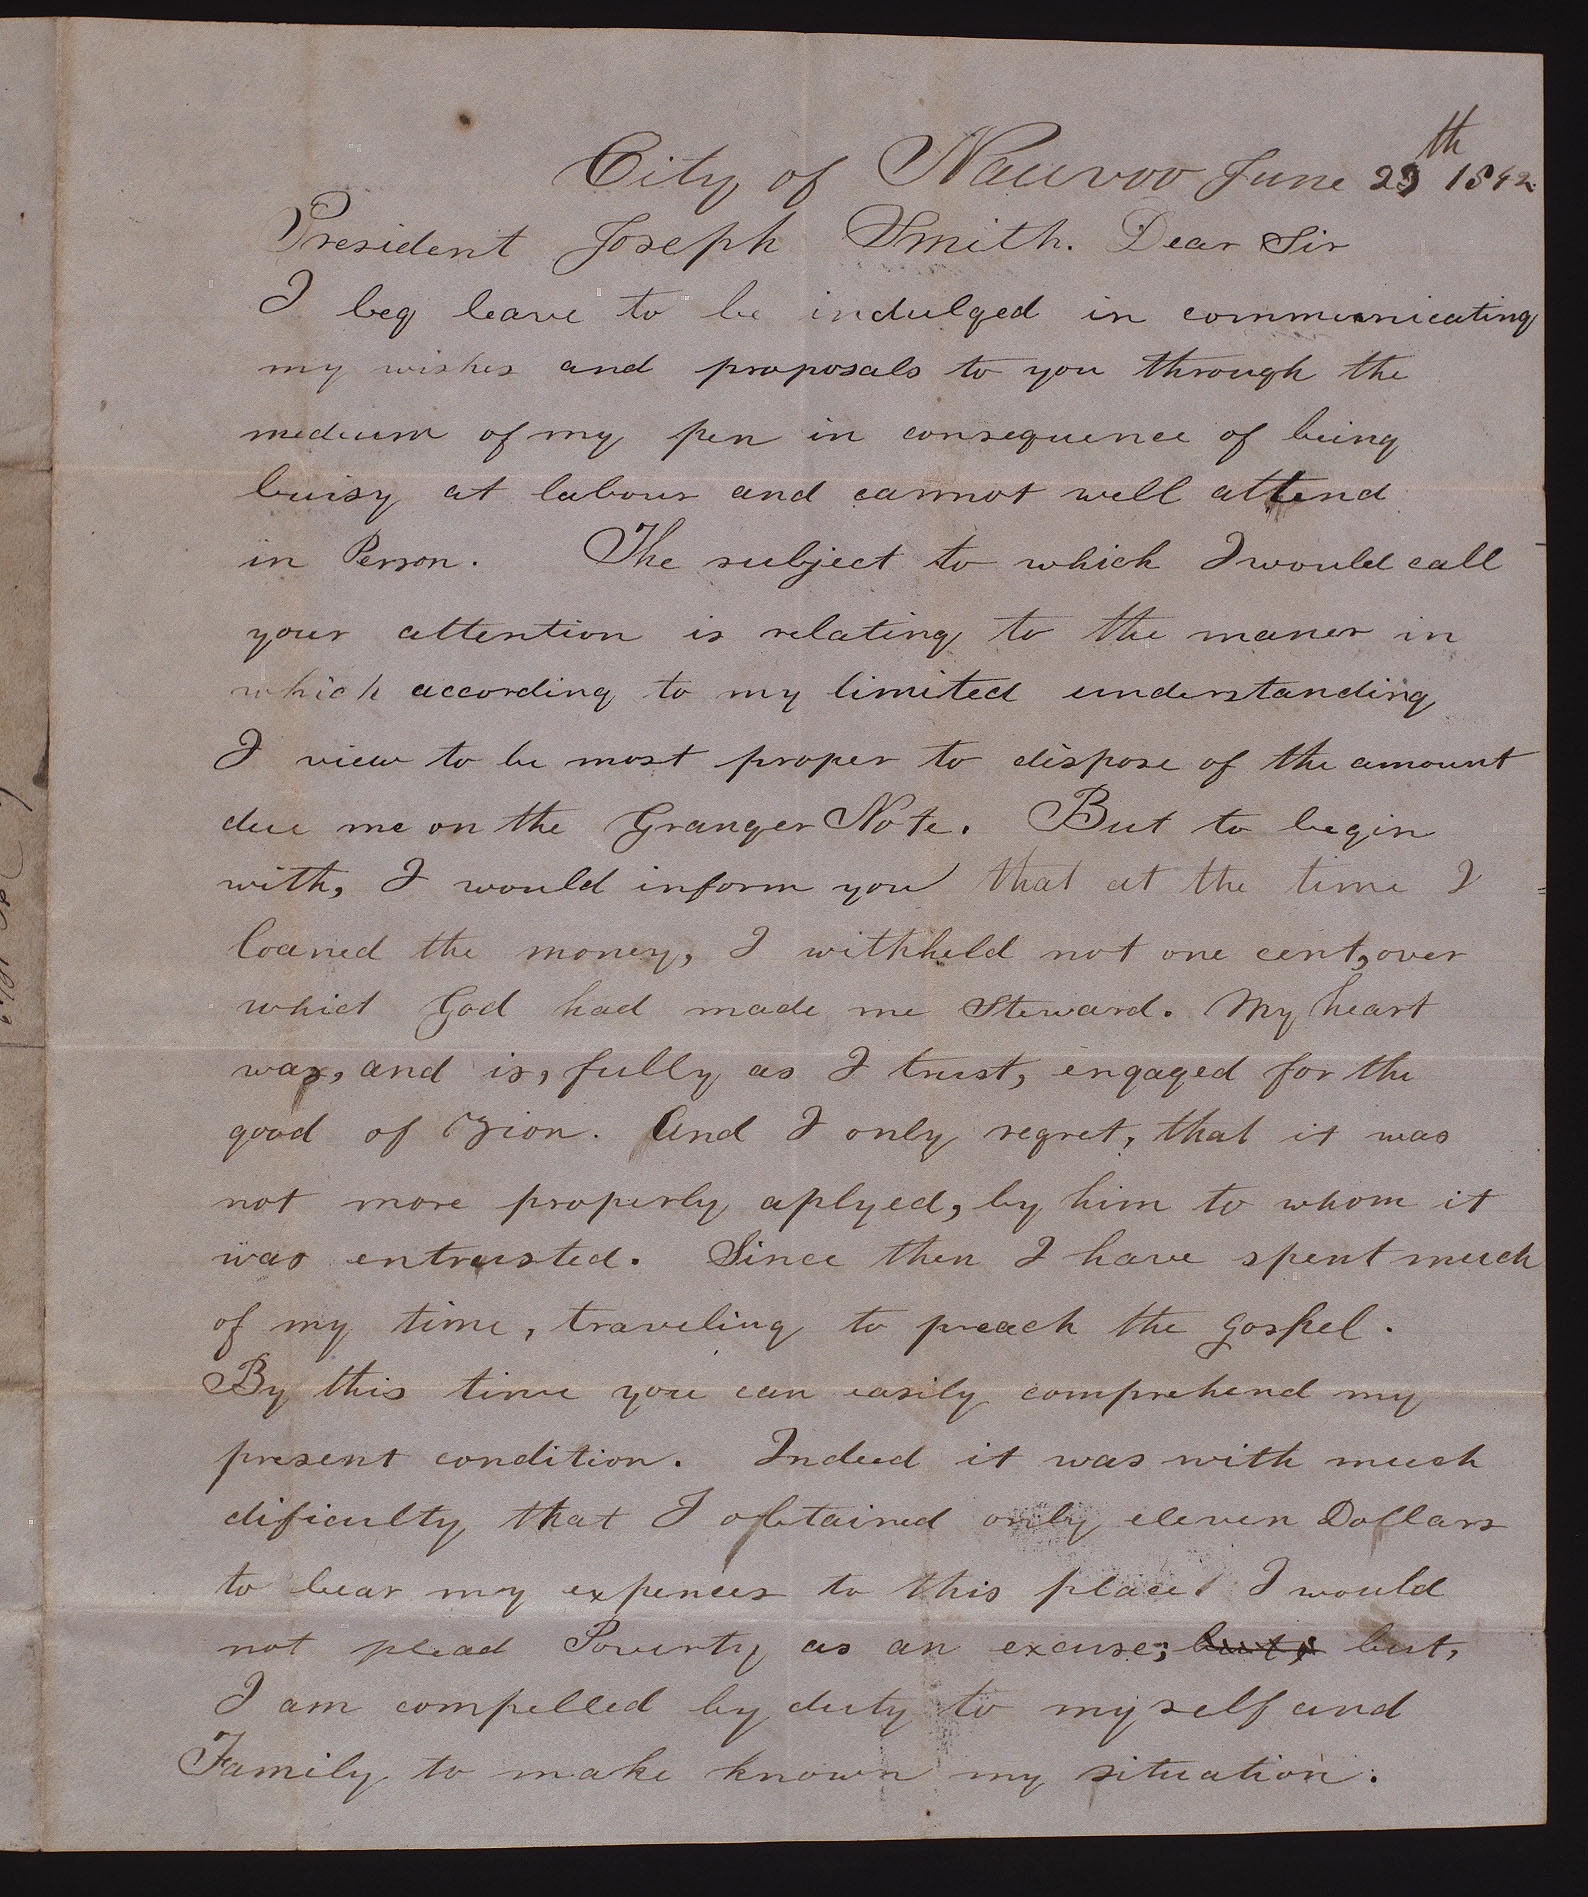 City of Nauvoo June 29th 1842
President Joseph Smith. Dear Sir
I beg leave to be indulged in communicating
my wishes and proposals to you through the
medium of my pen in consequence of being
buisy at labour and cannot well attend
in Person. The subject to which I would call
your attention is relating to the maner in
which according to my limited understanding
I view to be most proper to dispose of the amount
due me on the Granger Note. But to begin
with, I would inform you that at the time I
loaned the money, I withheld not one cent, over
which God had made me Steward. My heart
was, and is, fully as I trust, engaged for the
good of Zion. And I only regret, that it was
not more properly aplyed, by him to whom it
was entrusted. Since then I have spent much
of my time, traveling to preach the gospel.
By this time you can easily comprehend my
present condition. Indeed it was with much
dificulty that I obtained only eleven Dollars
to bear my expences to this place. I would
not plead Poverty as an excuse; but, but,
I am compelled by duty to myself and
Family to make known my situation.